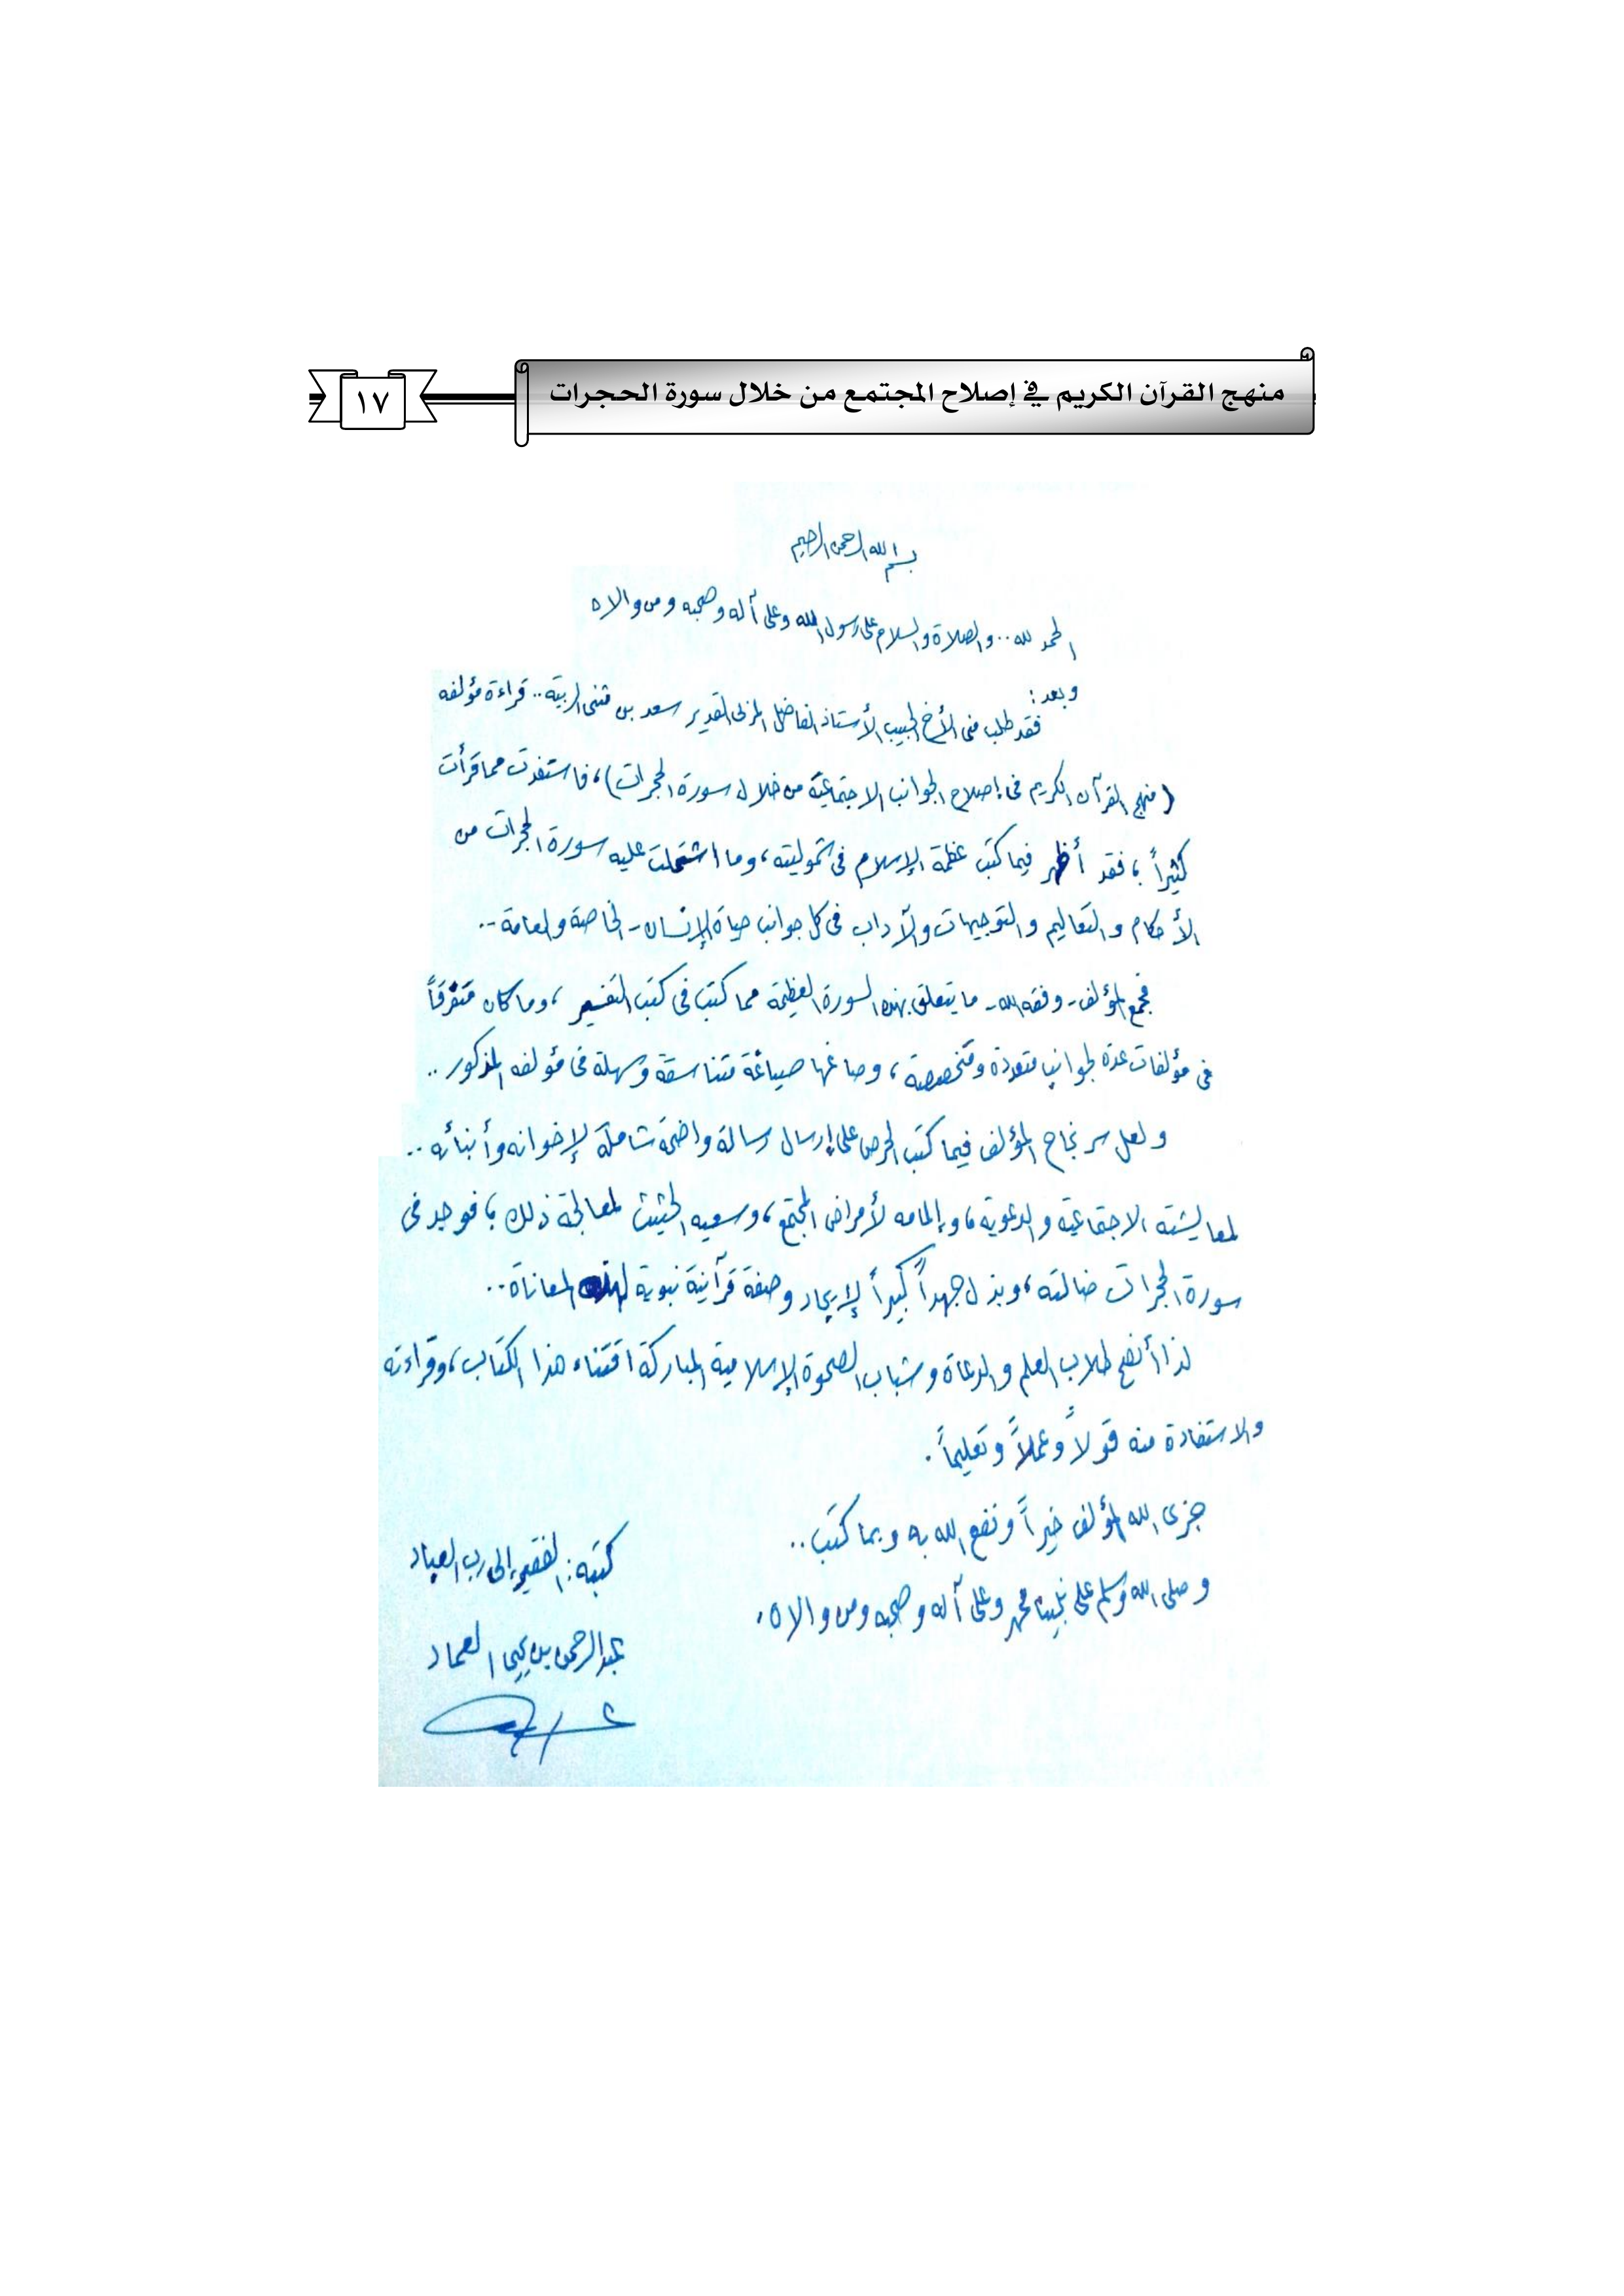 منهج القرآن الكريم في إصلاح المجتمع من خلال سورة الحجرات
١٧
بسم الله الرحمن الرحيم
الحمد لله .. والصلاة والسلام على رسول الله وعلى آله وصحبه ومن والاه
وبعد :
فقد طلب مني الأخ الحبيب الأستاذ الفاضل المربي القدير سعد بن مثنى .. قراءة مؤلفه
( منهج القرآن الكريم في إصلاح الجوانب الاجتماعية من خلال سورة الحجرات ) ، فاستفدت مما قرأت
كثيراً ، فقد أظهر فيما كتب عظمة الإسلام في شموليته ، وما اشتملت عليه سورة الحجرات من
الأحكام والتعاليم والتوجيهات والآداب في كل جوانب حياة الإنسان - الخاصة والعامة - ..
فجمع المؤلف - وفقه الله - ما يتعلق بهذه السورة العظيمة مما كتب في كتب التفسير ، وما كان متفرقاً
في مؤلفات عدة لجوانب متعددة ومتخصصة ، وصاغها صياغة متناسقة وسهلة في مؤلفه المذكور ..
ولعل سر نجاح المؤلف فيما كتب الحرص على إرسال رسالة واضحة شاملة لإخوانه وأبنائه ..
لمعايشته الاجتماعية والدعوية ، وإلمامه لأمراض المجتمع ، وسعيه الحثيث لمعالجة ذلك ، فوجد في
سورة الحجرات ضالته ، وبذل جهداً كبيراً لإيجاد وصفة قرآنية نبوية لهذه المعاناة ..
لذا أنصح طلاب العلم والدعاة وشباب الصحوة الإسلامية المباركة اقتناء هذا الكتاب ، وقراءته
والاستفادة منه قولاً وعملاً وتعليماً .
جزى الله المؤلف خيراً ونفع الله به وبما كتب ..
وصلى الله وسلم على نبينا محمد وعلى آله وصحبه ومن والاه .
كتبه : الفقير إلى رب العباد
عبدالرحمن بن يحيى العماد